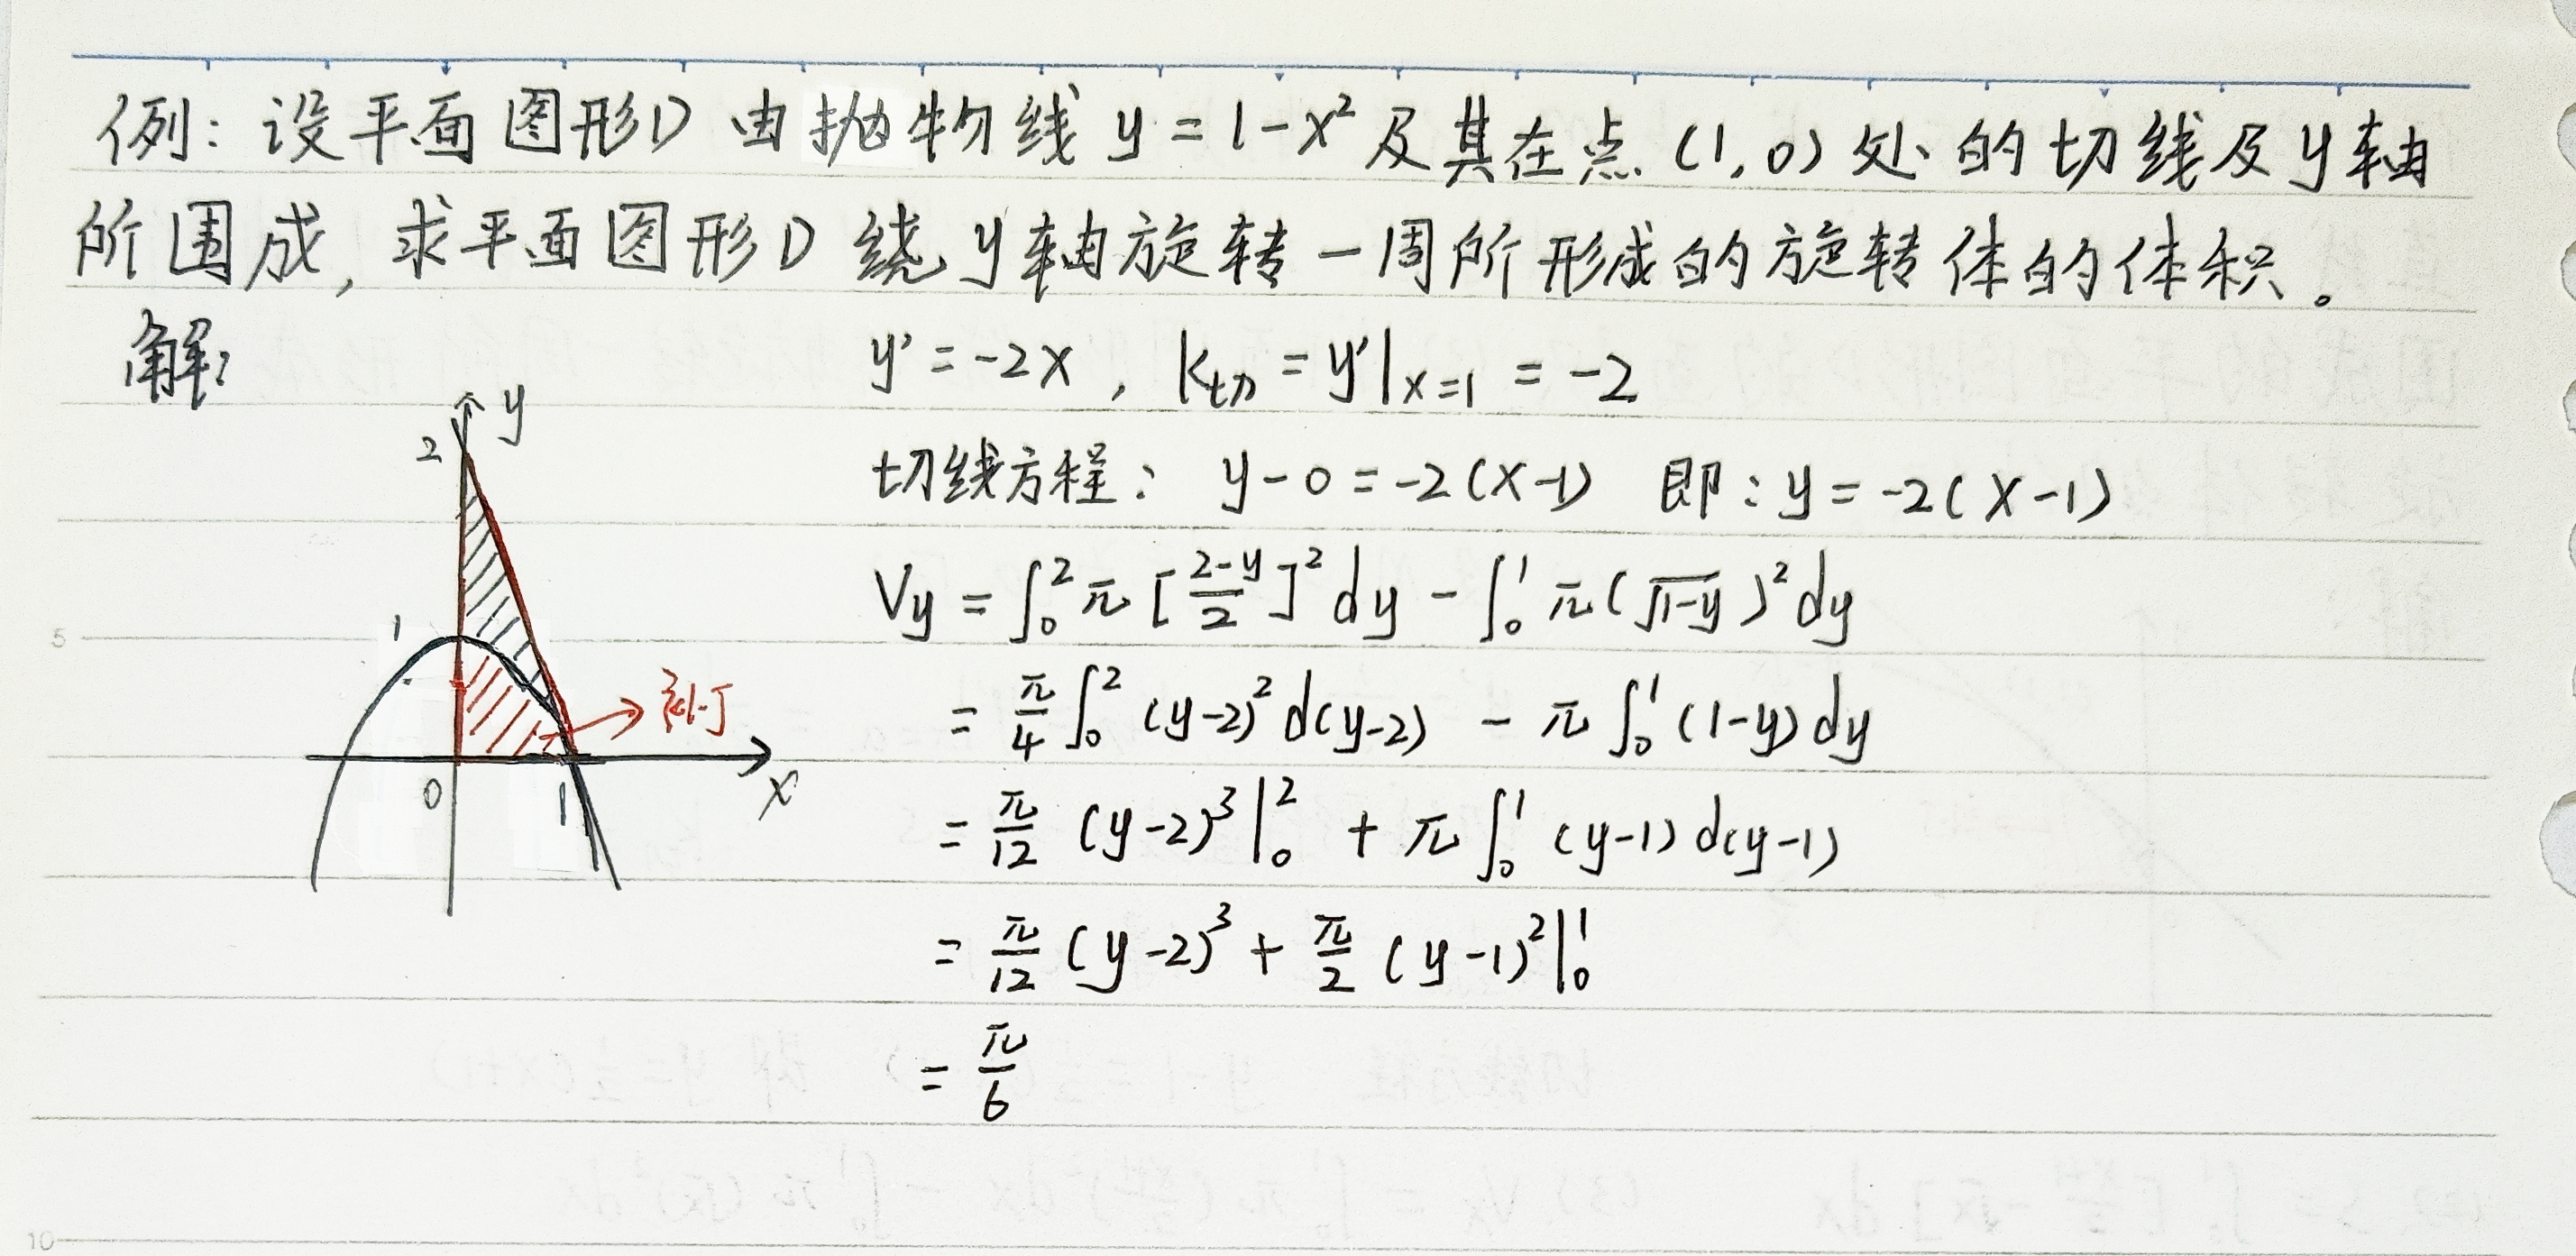 例：设平面图形D由抛物线 y = 1-x² 及其在点(1,0)处的切线及y轴
所围成,求平面图形D绕y轴旋转一周所形成的旋转体的体积。
解:
y' = -2x , k切 = y'|x=1 = -2
切线方程： y-0 = -2(x-1) 即：y = -2(x-1)
Vy = ∫₀² π [(2-y)/2]² dy - ∫₀¹ π(√(1-y))² dy
= π/4 ∫₀² (y-2)² d(y-2) - π ∫₀¹ (1-y) dy
= π/12 (y-2)³|₀² + π ∫₀¹ (y-1) d(y-1)
= π/12 (y-2)³ + π/2 (y-1)²|₀¹
= π/6
y
2
1
补丁
0
1
x
5
10